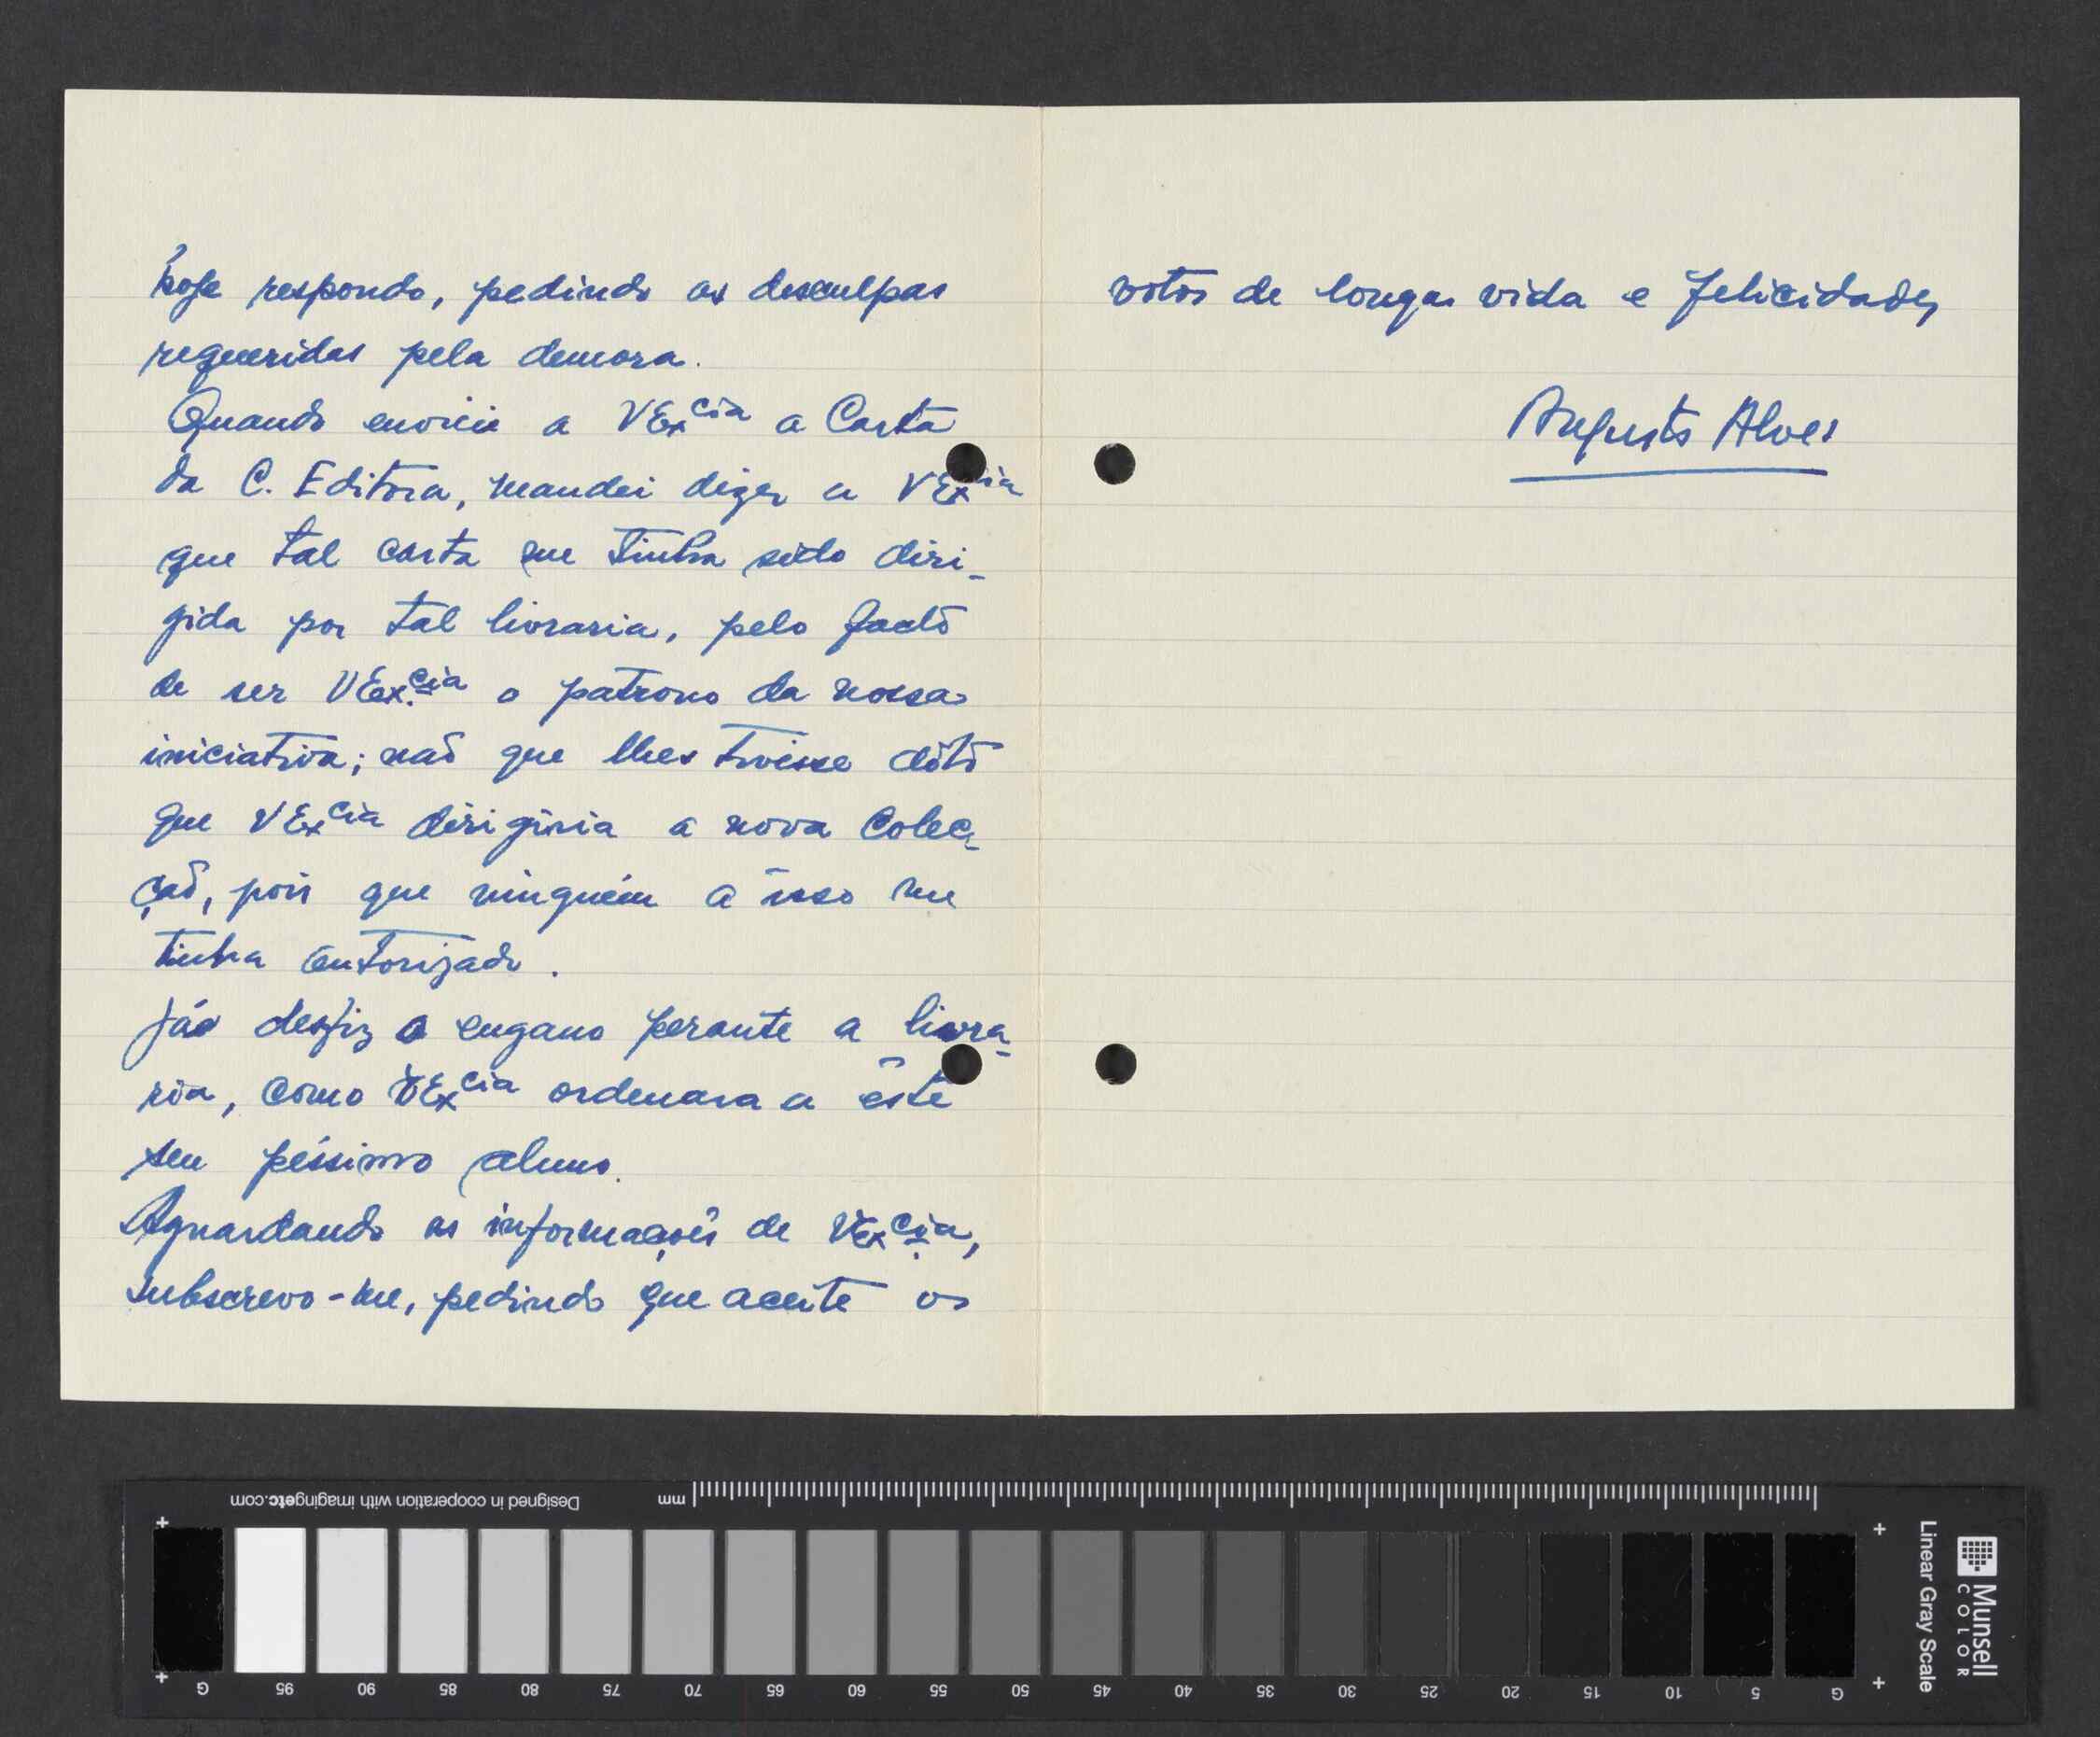 hoje respondo, pedindo as desculpas
requeridas pela demora.
Quando enviei a VExcia a Carta
da C. Editora, mandei dizer a VExcia
que tal carta me tinha sido diri-
gida por tal livraria, pelo facto
de ser VEx.cia o patrono da nossa
iniciativa; não que lhes tivesse dito
que VExcia dirigiria a nova Colec-
ção, pois que ninguém a isso me
tinha autorizado.
Já desfiz o engano perante a livra-
ria, como VExcia ordenara a êste
seu péssimo aluno.
Aguardando as informações de VExcia,
subscrevo-me, pedindo que aceite os
votos de longa vida e felicidades
Augusto Alves
Designed in cooperation with imagingetc.com
mm
G 95 90 85 80 75 70 65 60 55 50 45 40 35 30 25 20 15 10 5 G
Munsell
COLOR
Linear Gray Scale